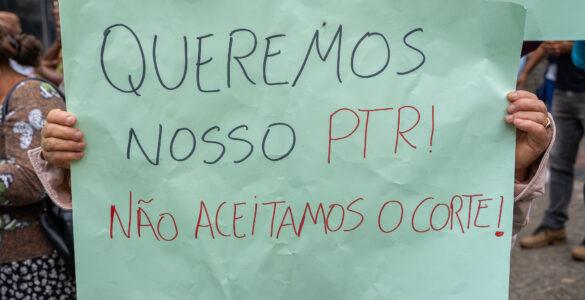 QUEREMOS
NOSSO PTR!
NÃO ACEITAMOS O CORTE!